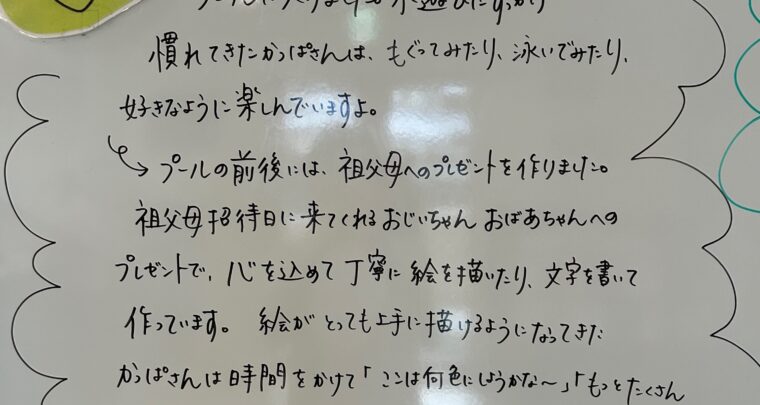 プールに入りました。水遊びにすっかり
慣れてきたかっぱさんは、もぐってみたり、泳いでみたり、
好きなように楽しんでいますよ。
プールの前後には、祖父母へのプレゼントを作りました。
祖父母招待日に来てくれるおじいちゃん おばあちゃんへの
プレゼントで、心を込めて丁寧に絵を描いたり、文字を書いて
作っています。 絵がとっても上手に描けるようになってきた
かっぱさんは時間をかけて「ここは何色にしようかな～」「もっとたくさん